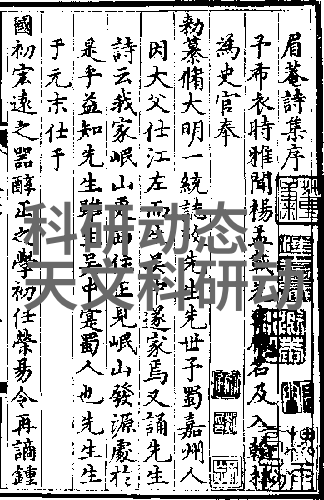 眉菴詩集序
予布衣時雅聞楊孟載名及入翰林
為史官奉
勑纂脩大明一統誌先生先世予蜀嘉州人
因大父仕江左而生吳中遂家焉又誦先生
詩云我家岷山更西住正見岷山發源處於
是乎益知先生雖生吳中寔蜀人也先生生
于元末仕于
國初宏遠之器醇正之學初任滎昜令再謫鍾
科研动态
天文科研动